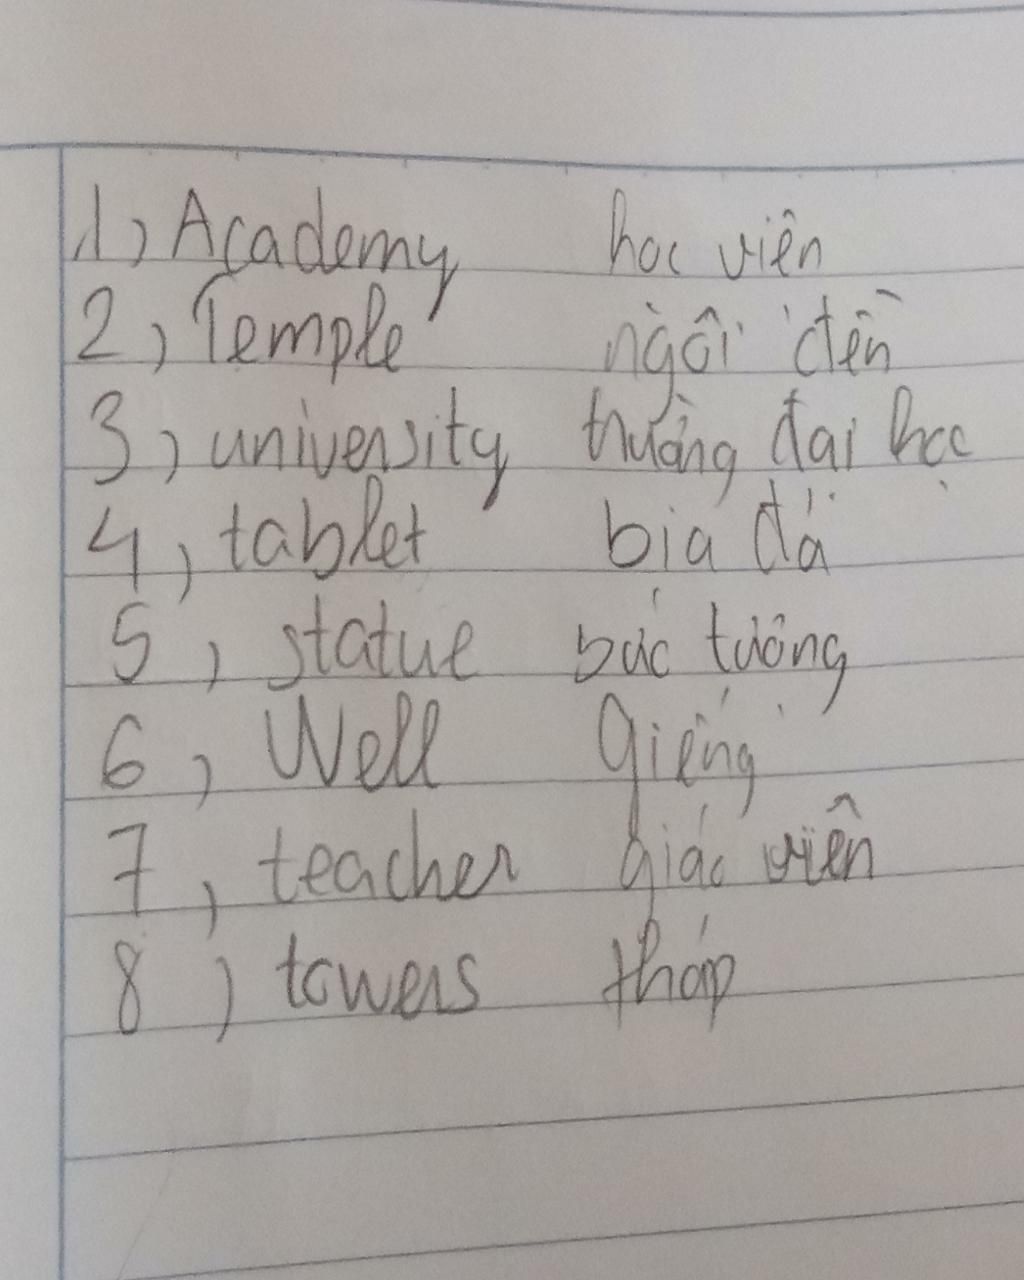 1, Academy học viên
2, Temple ngôi đền
3, university trường đại học
4, tablet bia đá
5, statue bức tường
6, Well Giếng
7, teacher giáo viên
8, towers tháp